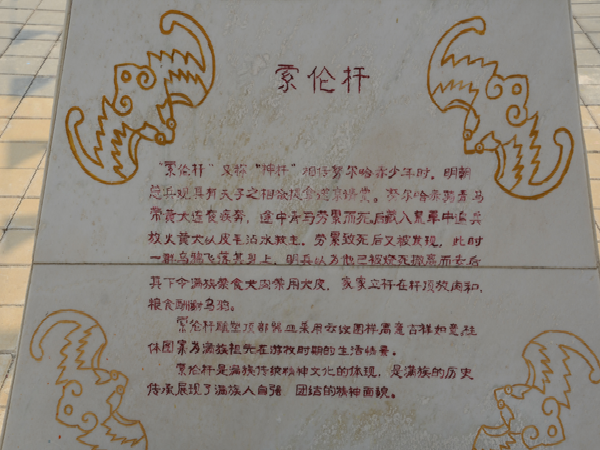 索伦杆
"索伦杆"又称"神杆"相传努尔哈赤少年时，明朝
总兵观其有天子之相欲
努尔哈赤骑青马
带黄犬连夜 途中青马劳累而死后藏入 草中追兵
放火黄犬以皮毛沾水救主，劳累致死后又被发现，此时
一群乌鸦飞落其身上，明兵以为他已被烧死撤离而去后
其下令满族禁食犬肉禁用犬皮，家家立杆在杆顶放肉和
粮食酬谢乌鸦。
索伦杆雕塑顶部 采用 图样寓意吉祥如意柱
体图案为满族祖先在游牧时期的生活情景。
索伦杆是满族传统精神文化的体现，是满族的历史
传承展现了满族人自强 团结的精神面貌。